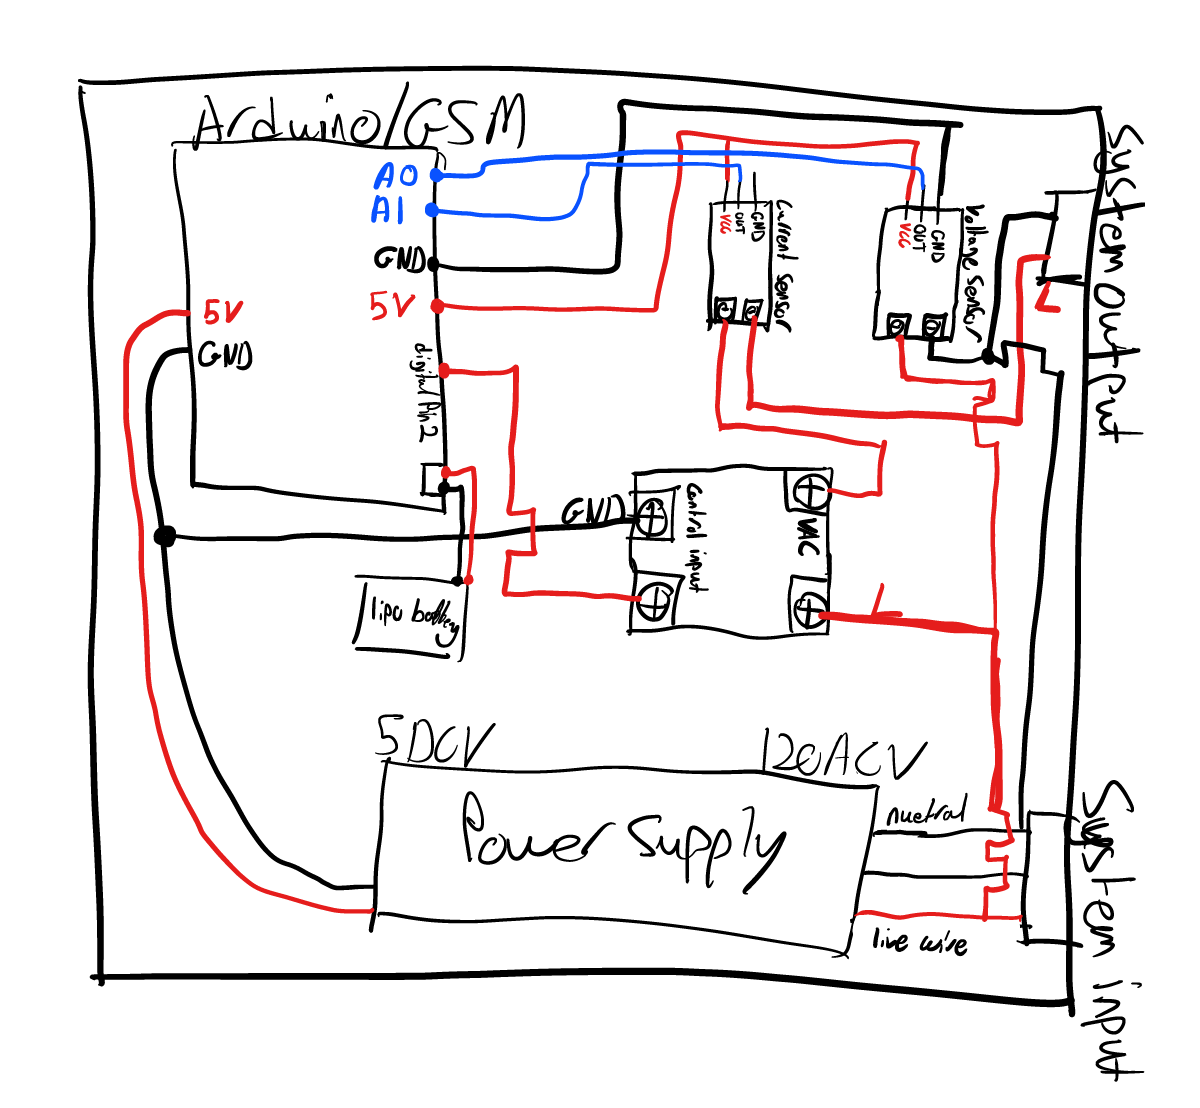 Arduino/GSM
A0
A1
GND
5V
5V
GND
digital Pin 2
VCC
OUT
GND
Current Sensor
VCC
OUT
GND
Voltage Sensor
System Output
L
GND
Control input
VAC
L
lipo battery
5DCV
120ACV
Power Supply
nuetral
live wire
System input